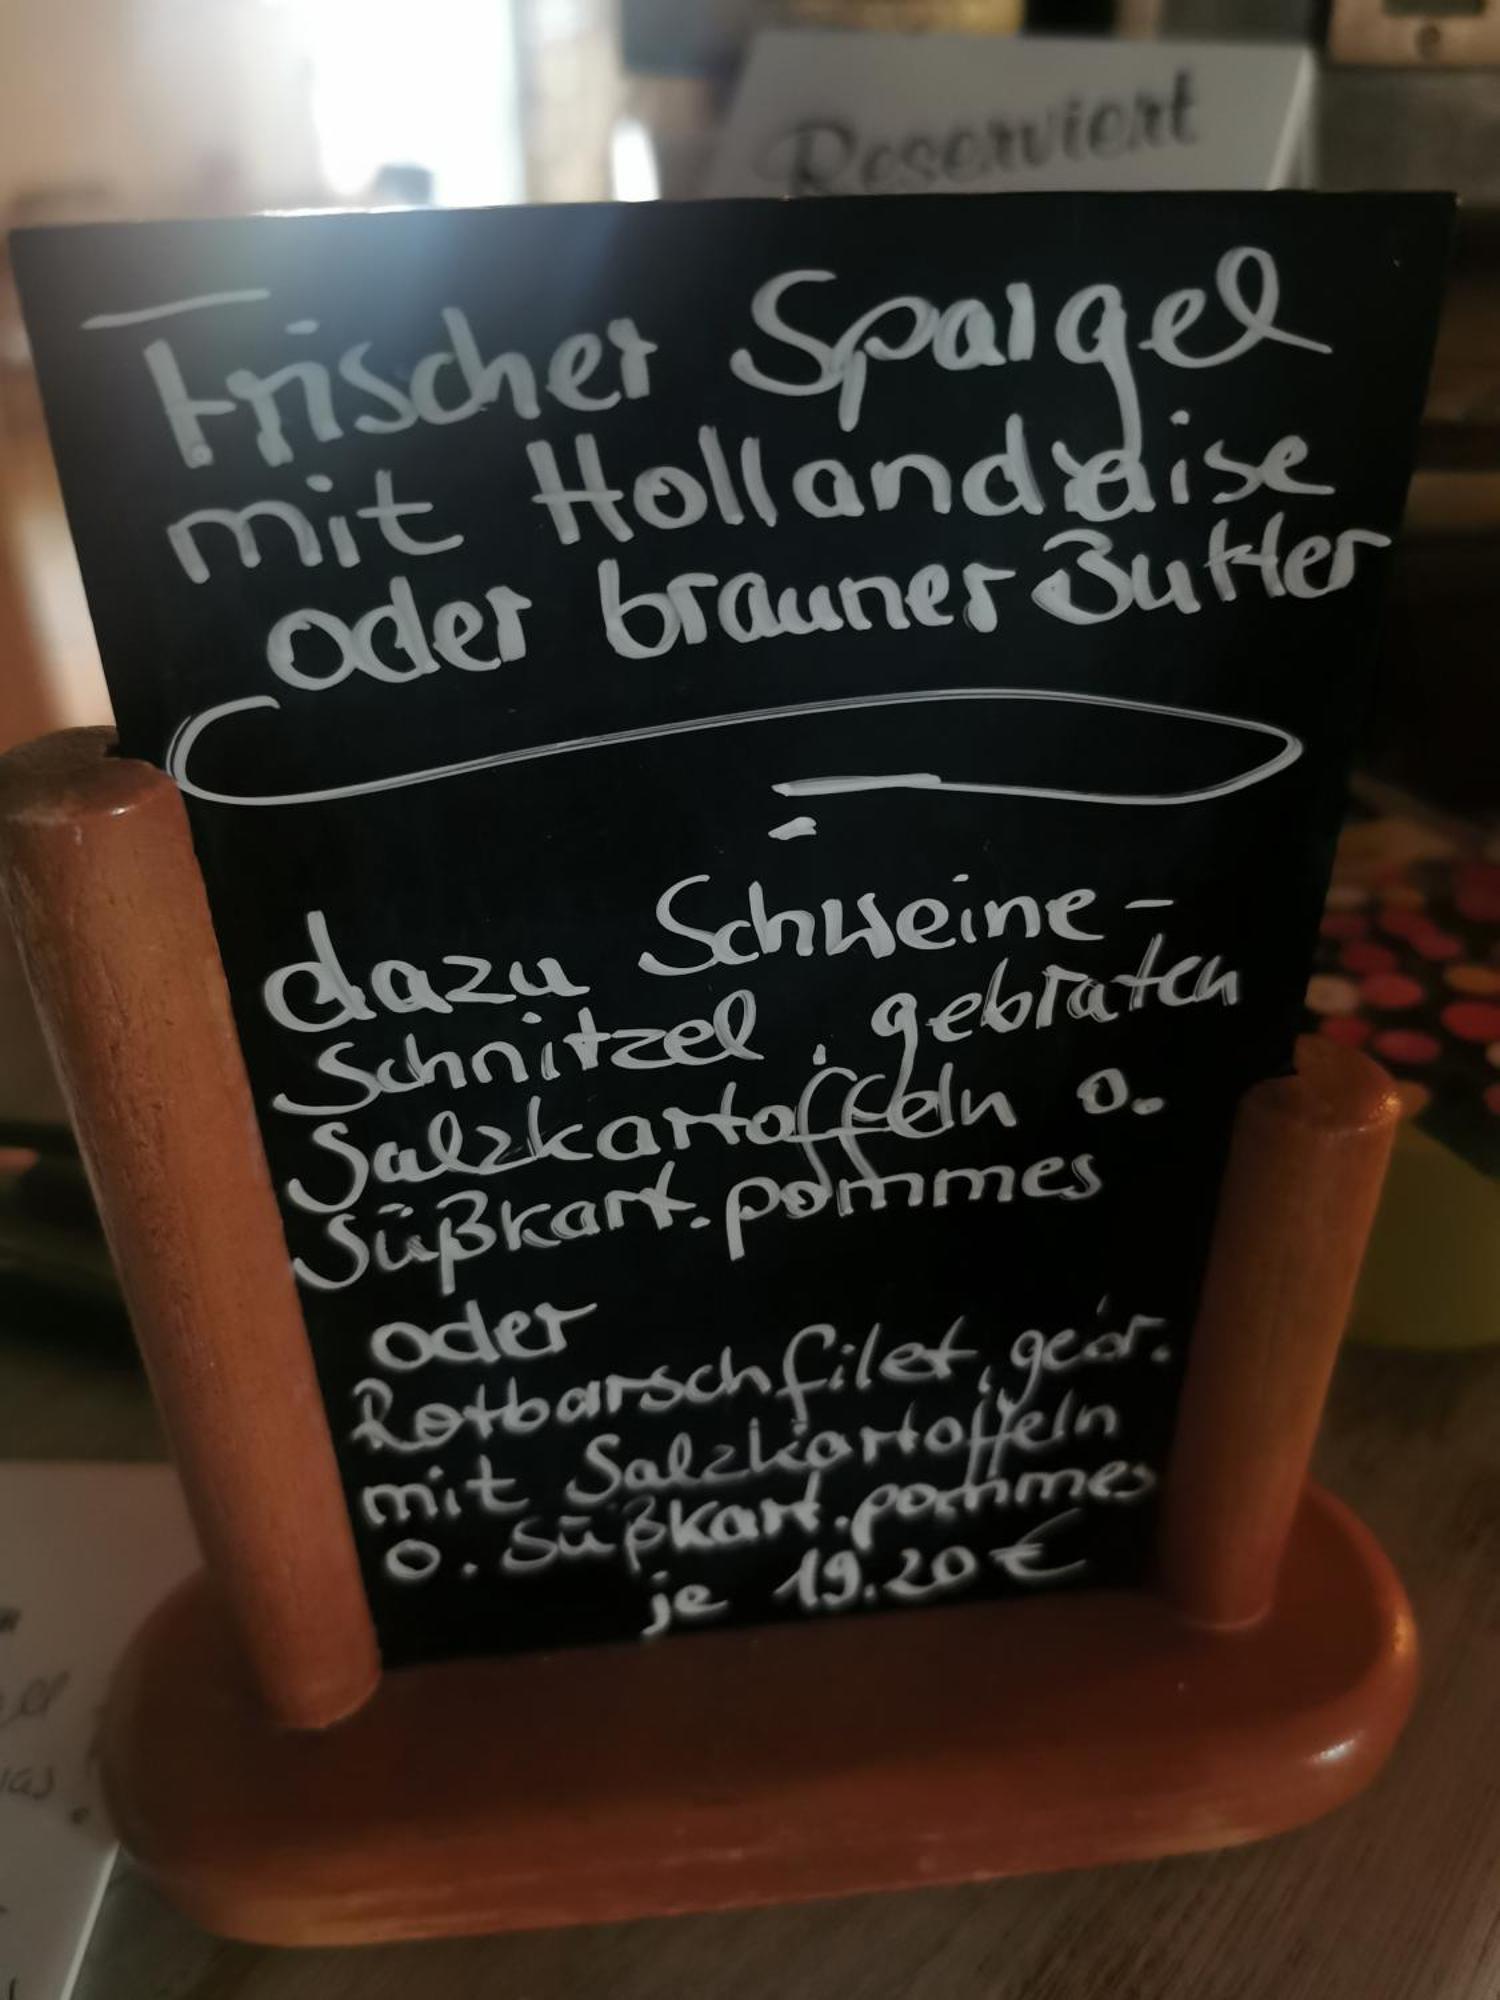 Reserviert
Frischer Spargel
mit Hollandaise
oder brauner Butter
dazu Schweine-
Schnitzel, gebraten
Salzkartoffeln o.
Süßkart.pommes
oder
Rotbarschfilet, gebr.
mit Salzkartoffeln
o. Süßkart.pommes
je 19.20 €